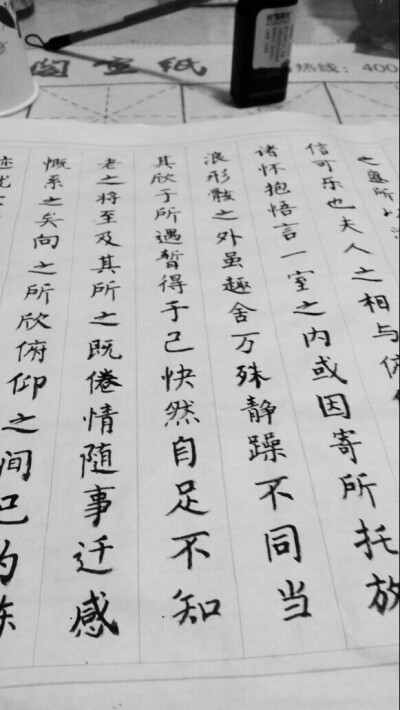 阁宣纸
热线：400
之盛所以
信可乐也夫人之相与俯
诸怀抱悟言一室之内或因寄所托放
浪形骸之外虽趣舍万殊静躁不同当
其欣于所遇暂得于己快然自足不知
老之将至及其所之既倦情随事迁感
慨系之矣向之所欣俯仰之间已为陈
迹犹